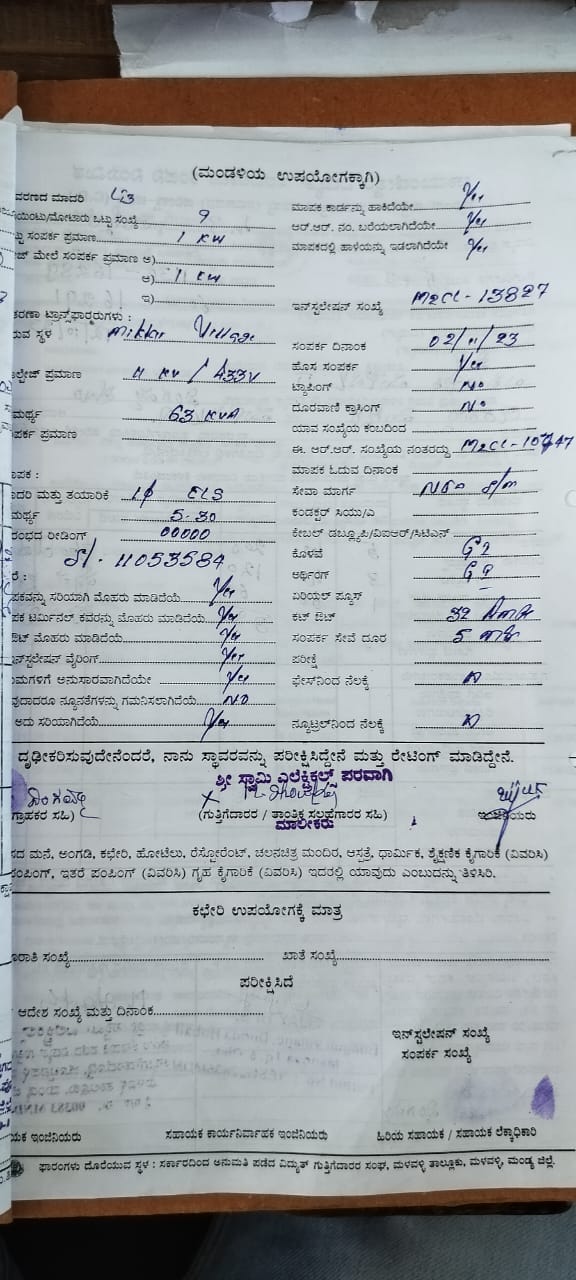 (ಮಂಡಳಿಯ ಉಪಯೋಗಕ್ಕಾಗಿ)
ವರಣದ ಮಾದರಿ
ಯಿಂಟು/ಮೋಟಾರು ಒಟ್ಟು ಸಂಖ್ಯೆ 9
ಟ್ಟು ಸಂಪರ್ಕ ಪ್ರಮಾಣ 1 KW
ಮೇಲೆ ಸಂಪರ್ಕ ಪ್ರಮಾಣ ಅ)
ಆ) 1 KW
ಇ)
ಕರಣಾ ಟ್ರಾನ್ಸ್‌ಫಾರ್ಮರುಗಳು :
ರುವ ಸ್ಥಳ Mikkar Village
ಲ್ಟೇಜ್ ಪ್ರಮಾಣ 11 KV / 433V
ಮರ್ಥ್ಯ 63 KVA
ಪರ್ಕ ಪ್ರಮಾಣ
ಾಪಕ :
ಾದರಿ ಮತ್ತು ತಯಾರಿಕೆ 1ϕ ELS
ಮರ್ಥ್ಯ 5-30
ರಂಭದ ರೀಡಿಂಗ್ 00000
Sl. 11053584
ರೆ :
ಪಕವನ್ನು ಸರಿಯಾಗಿ ಮೊಹರು ಮಾಡಿದೆಯೆ Yes
ಪಕ ಟರ್ಮಿನಲ್ ಕವರನ್ನು ಮೊಹರು ಮಾಡಿದೆಯೆ Yes
ಔಟ್ ಮೊಹರು ಮಾಡಿದೆಯೆ Yes
ನ್‌ಸ್ಟಲೇಷನ್ ವೈರಿಂಗ್ Yes
ಮಗಳಿಗೆ ಅನುಸಾರವಾಗಿದೆಯೇ Yes
ವುದಾದರೂ ನ್ಯೂನತೆಗಳನ್ನು ಗಮನಿಸಲಾಗಿದೆಯೆ NO
ಅದು ಸರಿಯಾಗಿದೆಯೆ Yes
ಮಾಪಕ ಕಾರ್ಡನ್ನು ಹಾಕಿದೆಯೇ Yes
ಆರ್.ಆರ್. ನಂ. ಬರೆಯಲಾಗಿದೆಯೇ Yes
ಮಾಪಕದಲ್ಲಿ ಹಾಳೆಯನ್ನು ಇಡಲಾಗಿದೆಯೇ Yes
ಇನ್‌ಸ್ಟಲೇಷನ್ ಸಂಖ್ಯೆ M2CL-13827
ಸಂಪರ್ಕ ದಿನಾಂಕ 02/11/23
ಹೊಸ ಸಂಪರ್ಕ Yes
ಟ್ಯಾಪಿಂಗ್ No
ದೂರವಾಣಿ ಕ್ರಾಸಿಂಗ್ No
ಯಾವ ಸಂಖ್ಯೆಯ ಕಂಬದಿಂದ
ಈ. ಆರ್.ಆರ್. ಸಂಖ್ಯೆಯ ನಂತರದ್ದು M2CL-
ಮಾಪಕ ಓದುವ ದಿನಾಂಕ
ಸೇವಾ ಮಾರ್ಗ
ಕಂಡಕ್ಟರ್ ಸಿಯು/ಎ
ಕೇಬಲ್ ಡಬ್ಲ್ಯೂಪಿ/ವಿಐಆರ್/ಸಿಟಿಎಸ್
ಕೊಳವೆ GI
ಅರ್ಥಿಂಗ್ GI
ಏರಿಯಲ್ ಪ್ಯೂಸ್ –
ಕಟ್ ಔಟ್ 32 Amp
ಸಂಪರ್ಕ ಸೇವೆ ದೂರ 5
ಪರೀಕ್ಷೆ
ಫೇಸ್‌ನಿಂದ ನೆಲಕ್ಕೆ
ನ್ಯೂಟ್ರಲ್‌ನಿಂದ ನೆಲಕ್ಕೆ
ದೃಢೀಕರಿಸುವುದೇನೆಂದರೆ, ನಾನು ಸ್ಥಾವರವನ್ನು ಪರೀಕ್ಷಿಸಿದ್ದೇನೆ ಮತ್ತು ರೇಟಿಂಗ್ ಮಾಡಿದ್ದೇನೆ.
ಶ್ರೀ ಸ್ವಾಮಿ ಎಲೆಕ್ಟ್ರಿಕಲ್ಸ್ ಪರವಾಗಿ
ಗ್ರಾಹಕರ ಸಹಿ) (ಗುತ್ತಿಗೆದಾರರ / ತಾಂತ್ರಿಕ ಸಲಹೆಗಾರರ ಸಹಿ) ಇಂಜಿನಿಯರು
ಮಾಲೀಕರು
ಸದ ಮನೆ, ಅಂಗಡಿ, ಕಛೇರಿ, ಹೋಟೆಲು, ರೆಸ್ಟೋರೆಂಟ್, ಚಲನಚಿತ್ರ ಮಂದಿರ, ಆಸ್ಪತ್ರೆ, ಧಾರ್ಮಿಕ, ಶೈಕ್ಷಣಿಕ ಕೈಗಾರಿಕೆ (ವಿವರಿಸಿ)
ಂಪಿಂಗ್, ಇತರೆ ಪಂಪಿಂಗ್ (ವಿವರಿಸಿ) ಗೃಹ ಕೈಗಾರಿಕೆ (ವಿವರಿಸಿ) ಇದರಲ್ಲಿ ಯಾವುದು ಎಂಬುದನ್ನು ತಿಳಿಸಿರಿ.
ಕಛೇರಿ ಉಪಯೋಗಕ್ಕೆ ಮಾತ್ರ
ಾತಿ ಸಂಖ್ಯೆ ಖಾತೆ ಸಂಖ್ಯೆ
ಪರೀಕ್ಷಿಸಿದೆ
ಆದೇಶ ಸಂಖ್ಯೆ ಮತ್ತು ದಿನಾಂಕ
ಇನ್‌ಸ್ಟಲೇಷನ್ ಸಂಖ್ಯೆ
ಸಂಪರ್ಕ ಸಂಖ್ಯೆ
ಯಕ ಇಂಜಿನಿಯರು ಸಹಾಯಕ ಕಾರ್ಯನಿರ್ವಾಹಕ ಇಂಜಿನಿಯರು ಹಿರಿಯ ಸಹಾಯಕ / ಸಹಾಯಕ ಲೆಕ್ಕಾಧಿಕಾರಿ
ಫಾರಂಗಳು ದೊರೆಯುವ ಸ್ಥಳ : ಸರ್ಕಾರದಿಂದ ಅನುಮತಿ ಪಡೆದ ವಿದ್ಯುತ್ ಗುತ್ತಿಗೆದಾರರ ಸಂಘ, ಮಳವಳ್ಳಿ ತಾಲ್ಲೂಕು, ಮಳವಳ್ಳಿ, ಮಂಡ್ಯ ಜಿಲ್ಲೆ.